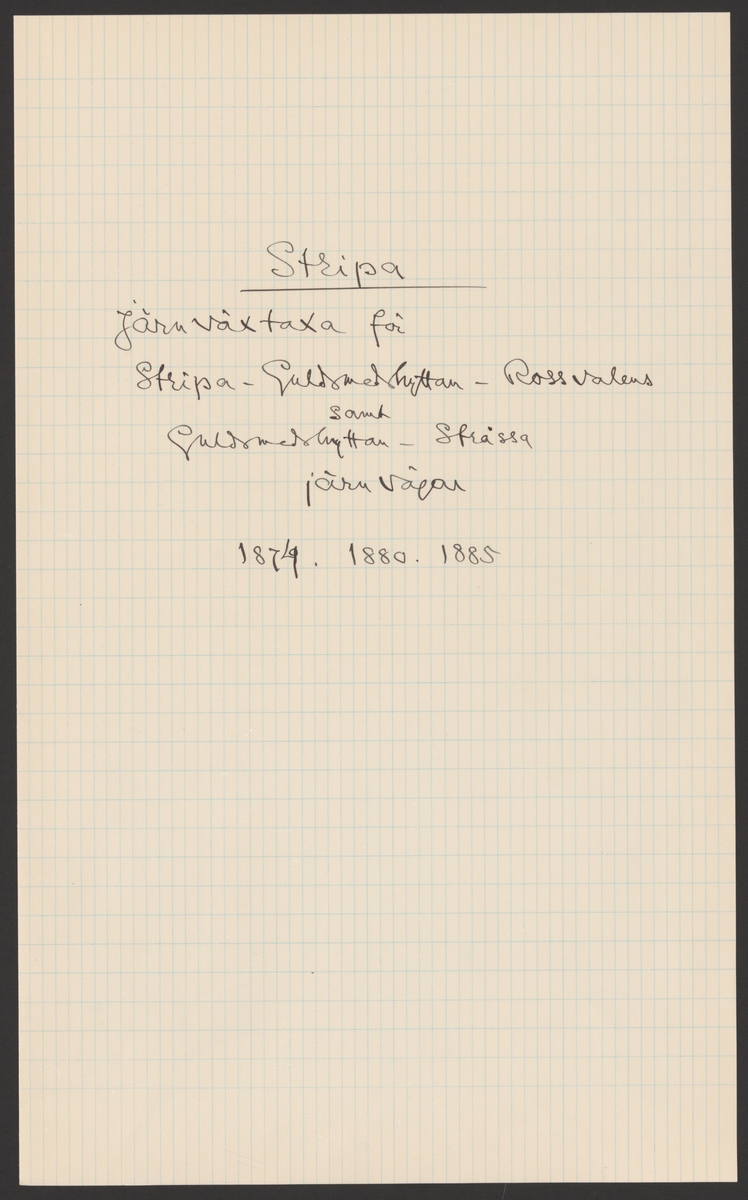 Stripa
Järnväxtaxa för
Stripa - Guldsmedshyttan - Rossvalens
samt
Guldsmedshyttan - Stråssa
järnvägar
1880. 1885